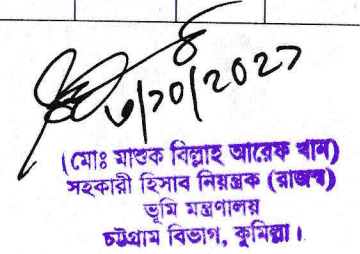 ৬/১০/২০২১
(মোঃ মাশুক বিল্লাহ আরেফ খান)
সহকারী হিসাব নিয়ন্ত্রক (রাজস্ব)
ভূমি মন্ত্রণালয়
চট্টগ্রাম বিভাগ, কুমিল্লা।